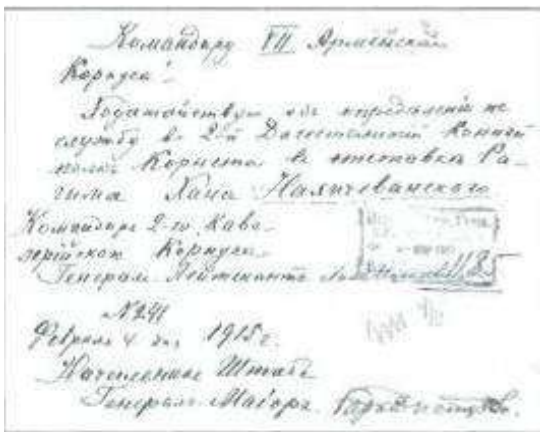 Командиру VII Армейскаго
Корпуса.
Ходатайствую об определении на
службу во 2-й Дагестанский Конный
полк Корнета в отставке Ра-
гима Хана Нахичеванского
Командир 2-го Кава-
лерийского Корпуса
Генерал Лейтенант
№ 241
Февраля 4 дня 1915 г.
Начальник Штаба
Генерал Маіор